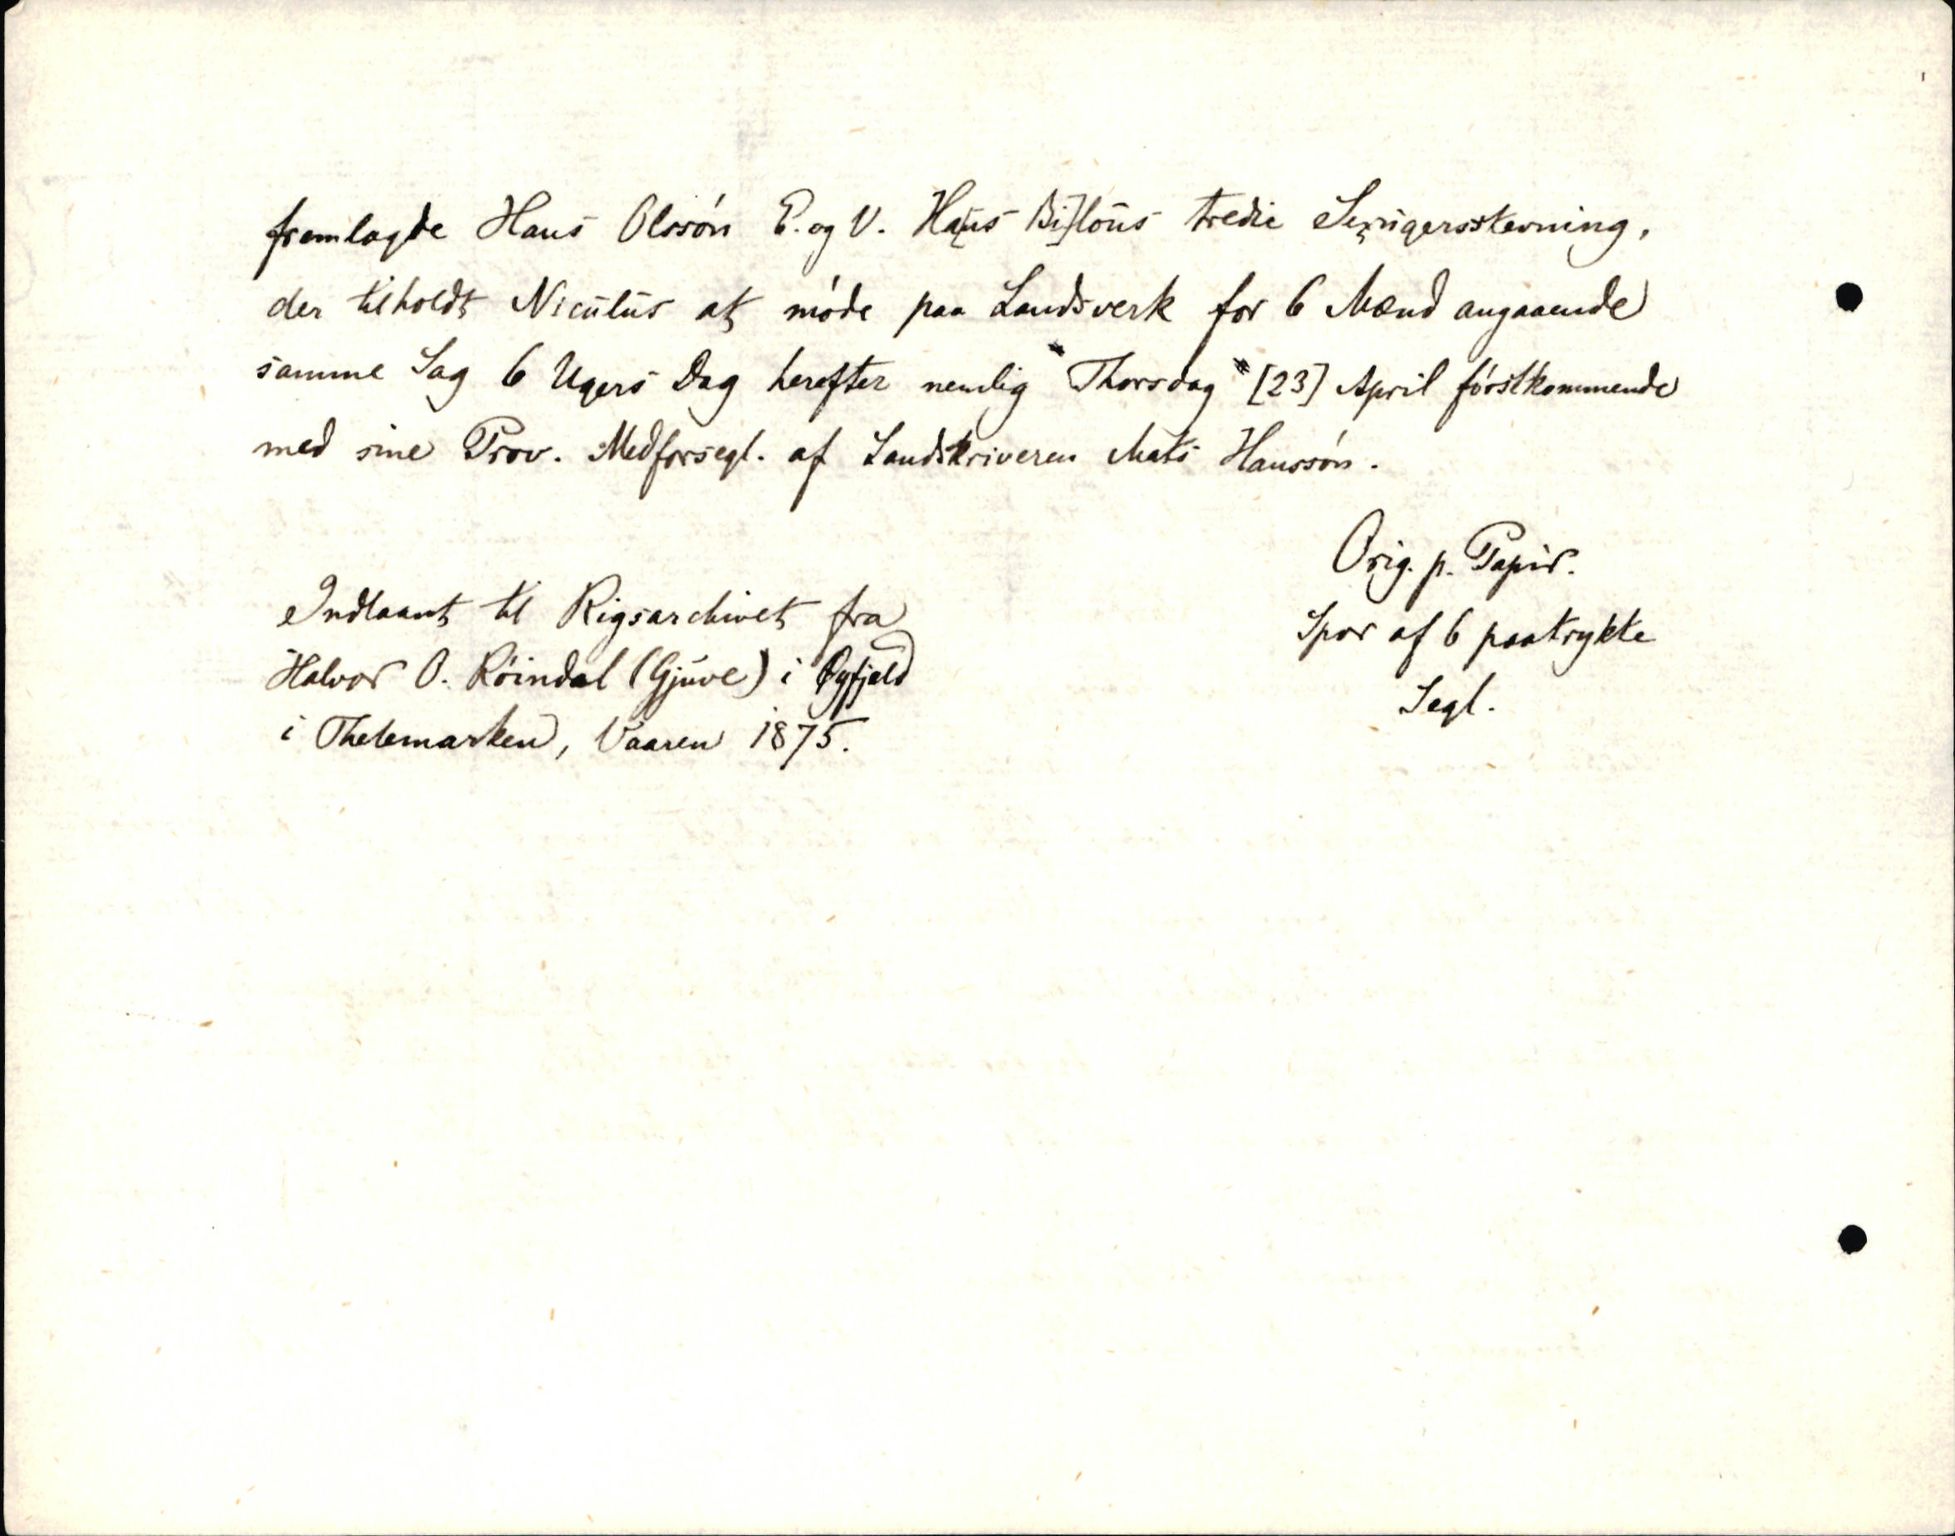 fremlagde Hans Olssón E. og V. Ha[ns Bi]lous tredie Sexugersstevning,
der tilholdt Niculus at móde paa Landsverk for 6 Mænd angaaende
samme Sag 6 Ugers Dag herefter nemlig "Thorsdag" [23] April fórstkommende
med sine Prov. Medforsegl. af Landskriveren Mats Hanssón.
Orig. p. Papir.
Spor af 6 paatrykte
Segl.
Indlaant til Rigsarchivet fra
Halvor O. Róindal (Gjuve) i Øyfjeld
i Thelemarken, Vaaren 1875.